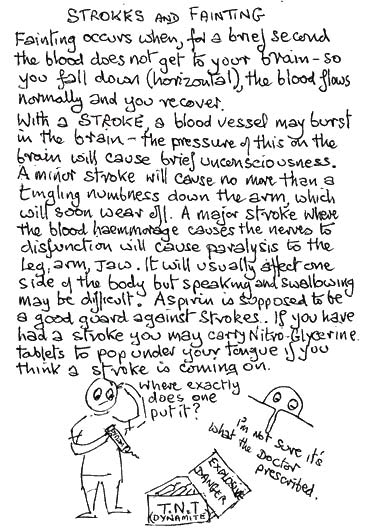 STROKES AND FAINTING
Fainting occurs when, for a brief second
the blood does not get to your brain - so
you fall down (horizontal), the blood flows
normally and you recover.
With a STROKE, a blood vessel may burst
in the brain - the pressure of this on the
brain will cause brief unconsciousness.
A minor stroke will cause no more than a
tingling numbness down the arm, which
will soon wear off. A major stroke where
the blood haemmorage causes the nerves to
disfunction will cause paralysis to the
leg, arm, jaw. It will usually affect one
side of the body but speaking and swallowing
may be difficult. Aspirin is supposed to be
a good guard against strokes. If you have
had a stroke you may carry Nitro-Glycerine
tablets to pop under your tongue if you
think a stroke is coming on.
Where exactly
does one
put it?
I'm not sure it's
what the Doctor
prescribed.
EXPLOSIVE
DANGER
T.N.T
(DYNAMITE)